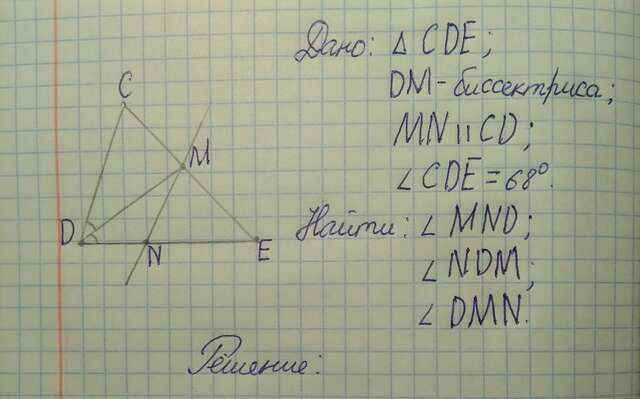 Дано: △ CDE;
DM - биссектриса;
MN || CD;
∠ CDE = 68°.
Найти: ∠ MND;
∠ NDM;
∠ DMN.
C
M
D
N
E
Решение: